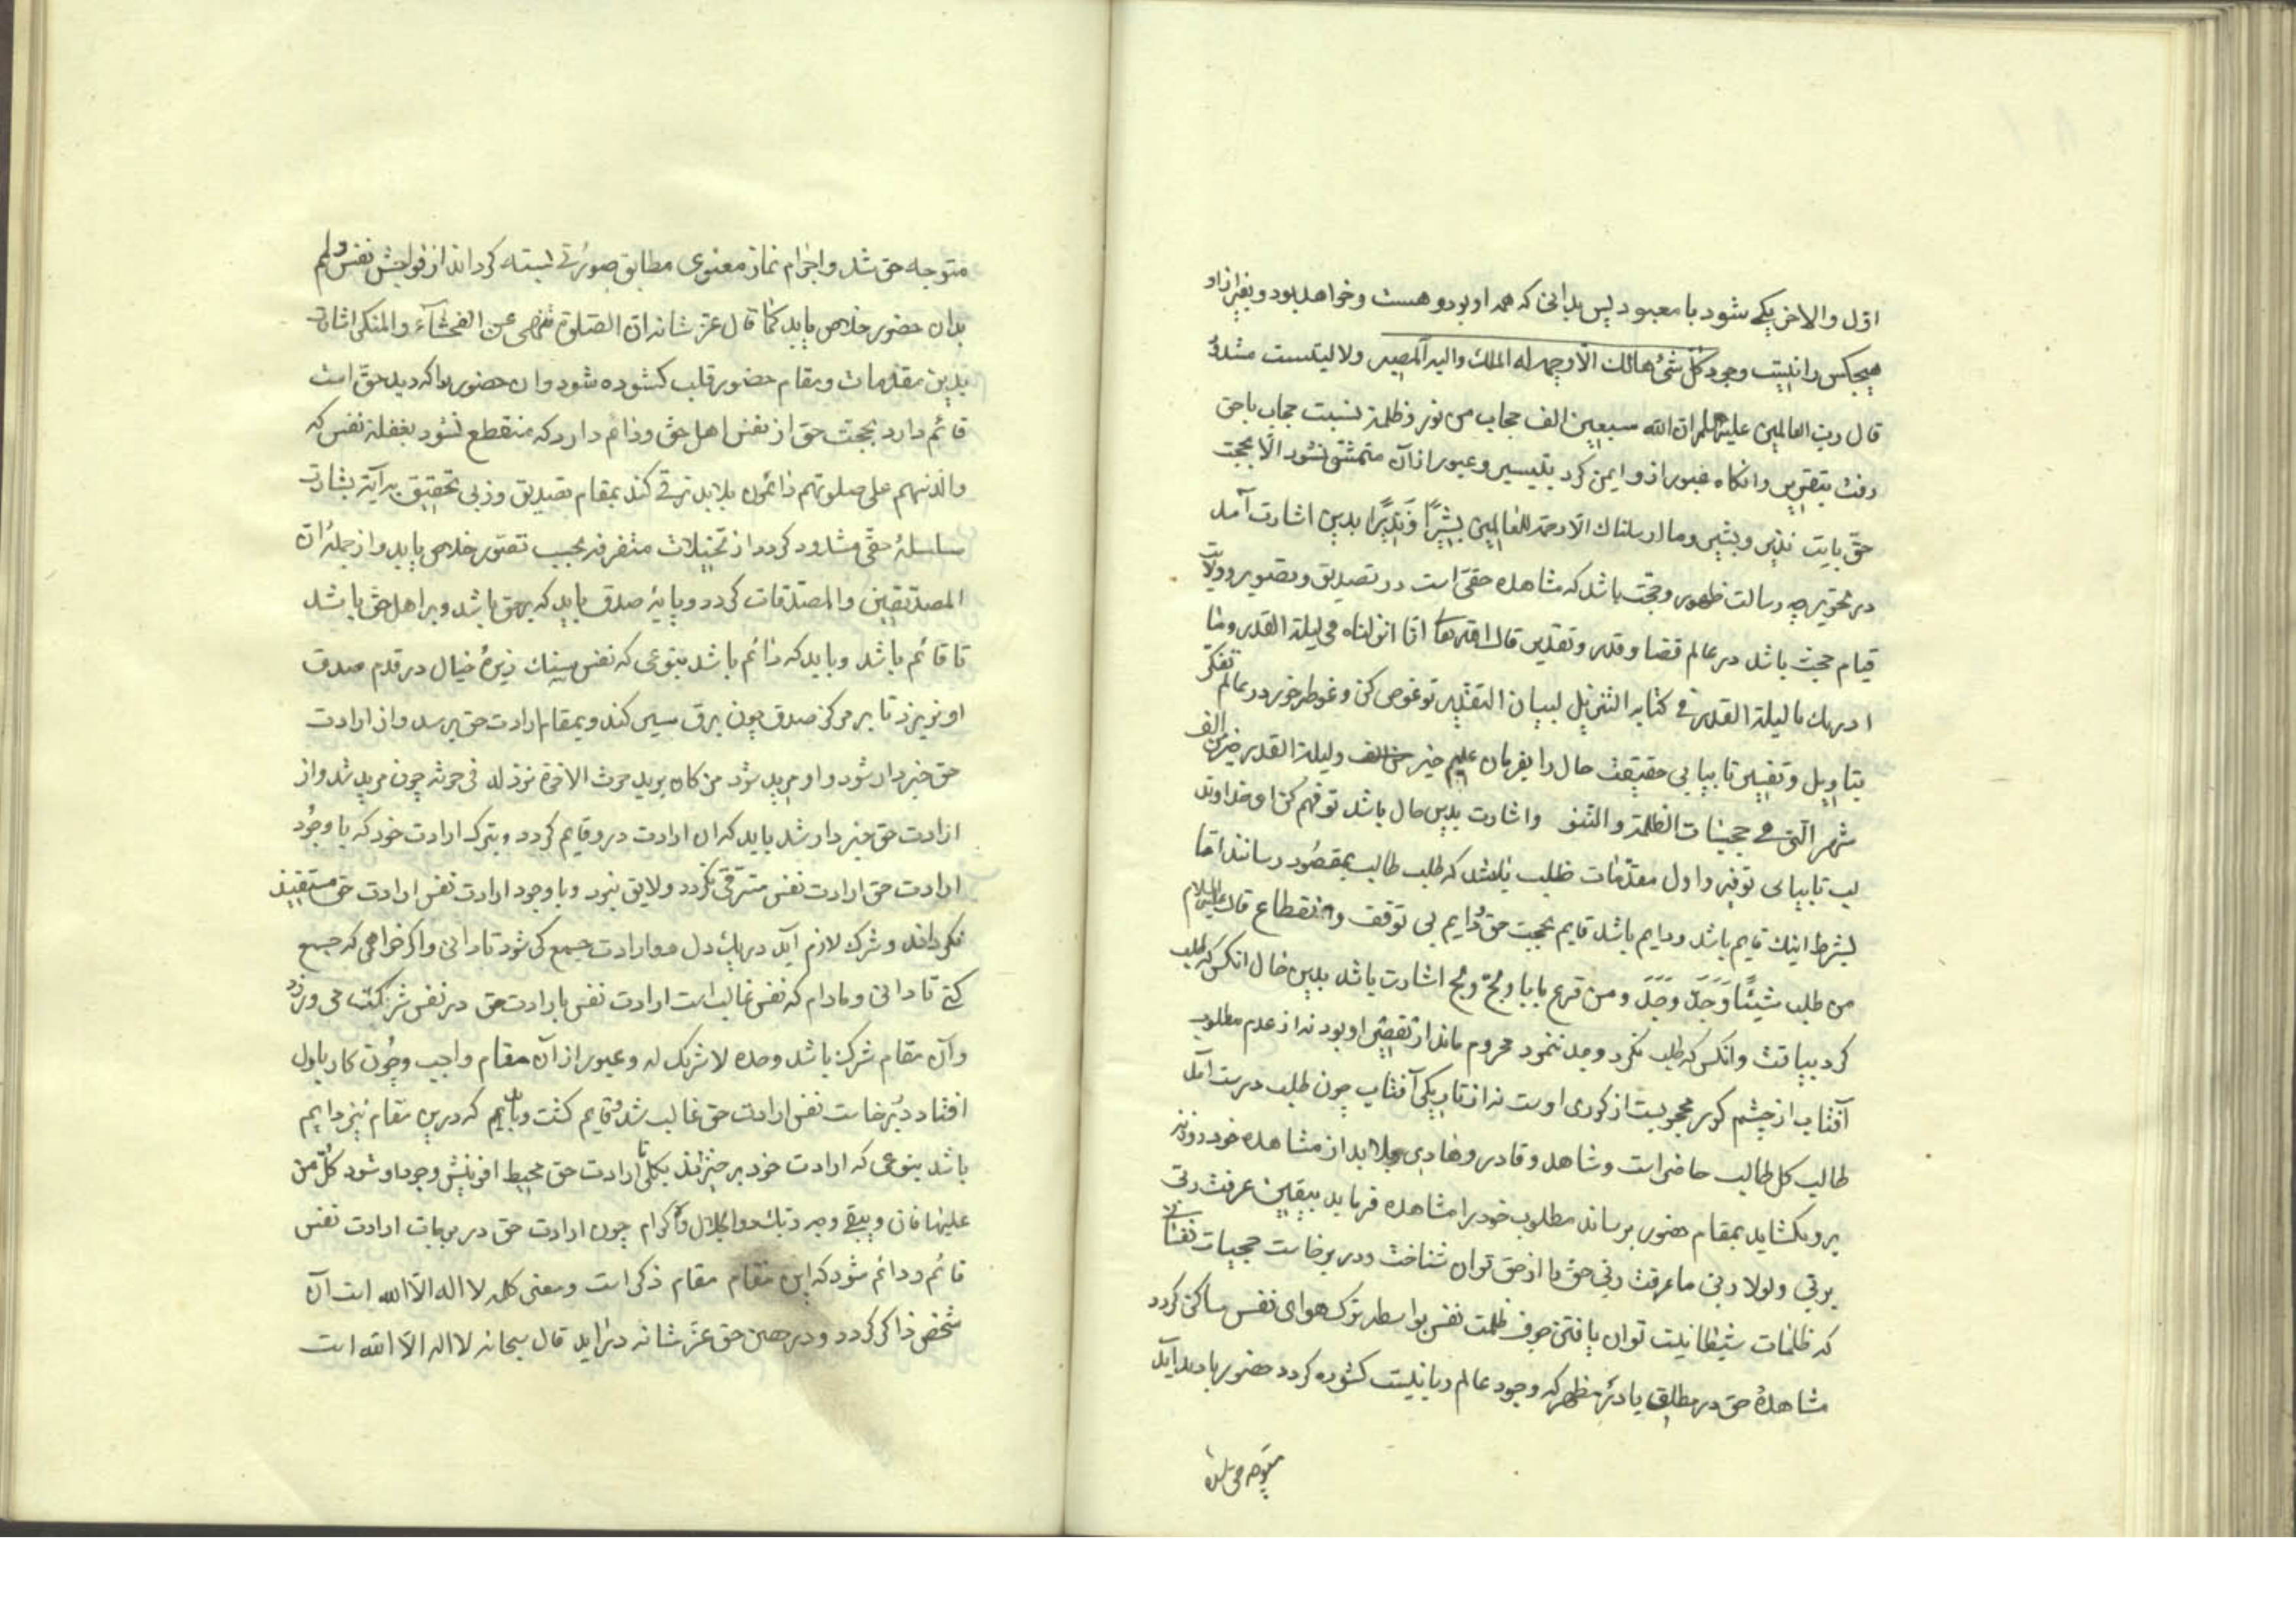 اول والاخر یکی شود با معبود پس بدانی که همه او بود و هست و خواهد بود و بغیر از او
هیچکس را نیست وجود کل شیٔ هالك الا وجهه له الملك والیه المصیر ولا لیست مثله
قال رب العالمین علیه السلم ان الله سبعین الف حجاب من نور و ظلمة نسبت حجاب با حق
رفت بتقریر وانکاه عبور از و ایمن کرد بتیسیر و عبور از آن متمشی نشود الا بحجت
حق بایت نذیر و بشیر وما ارسلناك الا رحمة للعالمین بشیرا و نذیرا بدین اشارت آمد
در تحریر چه رسالت ظهور و حجت باشد که مشاهده حقی است در تصدیق و تصویر و ولایت
قیام حجت باشد در عالم قضا و قدر و تقدیر قال الله تعالی انا انزلناه فی لیلة القدر وما
ادریك ما لیلة القدر فی کتابه التنزیل لبیان التقدیر تو غوص کن و غوطه خور در عالم تفکر
بتاویل و تفسیر تا بیابی حقیقت حال را بفرمان علیم خبیر ولیلة القدر خیر من الف
شهر التی فی حجبات الظلمة والتنو واشارت بدین حال باشد تو فهم کن او خداوند
لب تا بیابی توفیر و اول مقدمات طلب باشد که طلب طالب بمقصود رساند اما
بشرط اینك قایم باشد و دایم باشد قایم بحجت حق و دایم بی توقف و انقطاع قال علیه السلام
من طلب شیئا وجد وجد ومن قرع بابا ولج ولج اشارت باشد بدین حال انکس که طلب
کرد بیافت وانکس که طلب نکرد و جد ننمود محروم ماند از تقصیر او بود نه از عدم مطلوب
آفتاب از چشم کور محجوبست از کوری اوست نه از تاریکی آفتاب چون طلب درست آمد
طالب کل طالب حاضر است و شاهد و قادر و هادی و بلا بد از مشاهده خود روزنی
برو بکشاید بمقام حضور برساند مطلوب خود را مشاهده فرماید بیقین عرفت ربی
بربی ولولا ربی ما عرفت ربی حق را از حق توان شناخت و در برخاست حجبات نفسانی
که ظلمات شیطانیت توان یافتن چون ظلمت نفس بواسطه ترك هوای نفس ساکن کردد
مشاهدهٔ حق در مطلق یا در مظهر که وجود عالم ربانیست کشوده کردد حضور با دید آید
متوجه حق شده
متوجه حق شد و احرام نماز معنوی مطابق صورتی بسته کرداند از فواحش نفس
بدان حضور خلاص یابد کما قال عز شانه ان الصلوة تنهی عن الفحشآء والمنکر اشارت
بدین مقدمات و مقام حضور قلب کشوده شود و ان حضور را که دید حق است
قائم دارد بحجت حق از نفس اهل حق و دائم دارد که منقطع نشود بغفلة نفس که
والذینهم علی صلوتهم دائمون بلا بد ترقی کند بمقام تصدیق و زبی تحقیق به آیة بشارت
سلسلهٔ حقی مشدود کردد از تخیلات متفرقه بحسب تصور خلاص یابد و از جملهٔ ان
المصدقین والمصدقات کردد و پایهٔ صدق باید که برحق باشد و بر اهل حق باشد
تا قائم باشد و باید که دائم باشد بنوعی که نفس سنك ریزهٔ خیال در قدم صدق
او نریزد تا بر مرکز صدق چون برق سیر کند و بمقام ارادت حق برسد و از ارادت
حق خبردار شود و او مرید شود من کان یرید حرث الاخرة نزد له فی حرثه چون مرید شد و از
ارادت حق خبردار شد باید که ان ارادت درو قایم کردد و بترك ارادت خود که با وجود
ارادت حق ارادت نفس مترقی نکردد ولایق نبود و با وجود ارادت نفس ارادت حق مستفیذ
نکرداند و شرك لازم آید در یك دل دو ارادت جمع کی شود تا دانی و اکر خواهی که جمع
کنی تا دانی و مادام که نفس غالب است ارادت نفس با ارادت حق در نفس شرکت می ورزد
و آن مقام شرك باشد وحده لا شریك له و عبور از آن مقام واجب و چون کار باول
افتاد در برخاست نفس ارادت حق غالب شد و قایم کشت و باید که درین مقام نیز دایم
باشد بنوعی که ارادت خود برخیزاند بکلی تا ارادت حق محیط افرینش وجود او شود کل من
علیها فان ویبقی وجه ربك ذوالجلال والاکرام چون ارادت حق در بریات ارادت نفس
قائم و دائم شود که این مقام مقام ذکر است و معنی کلمه لا اله الا الله است آن
شخص ذاکر کردد و در حصن حق عز شانه درآید قال سبحانه لا اله الا الله است